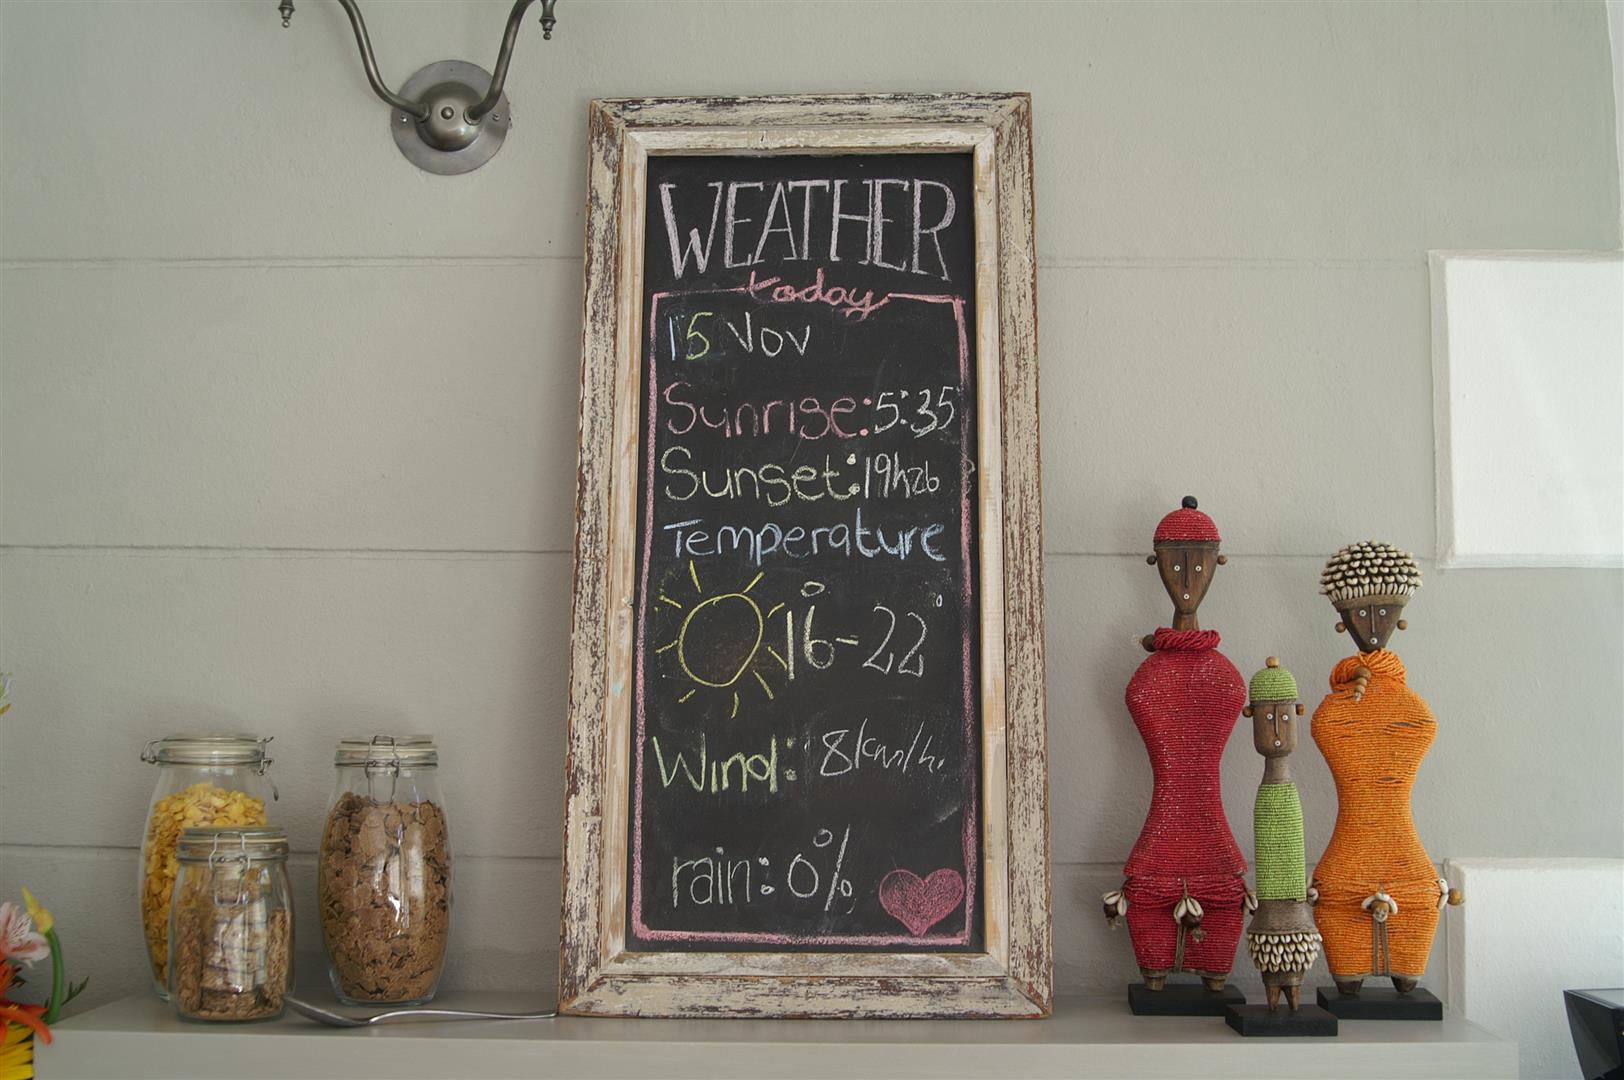 WEATHER
today
15 Nov
Sunrise: 5:35
Sunset: 19h26
Temperature
16°-22°
Wind: 8km/h.
rain: 0%